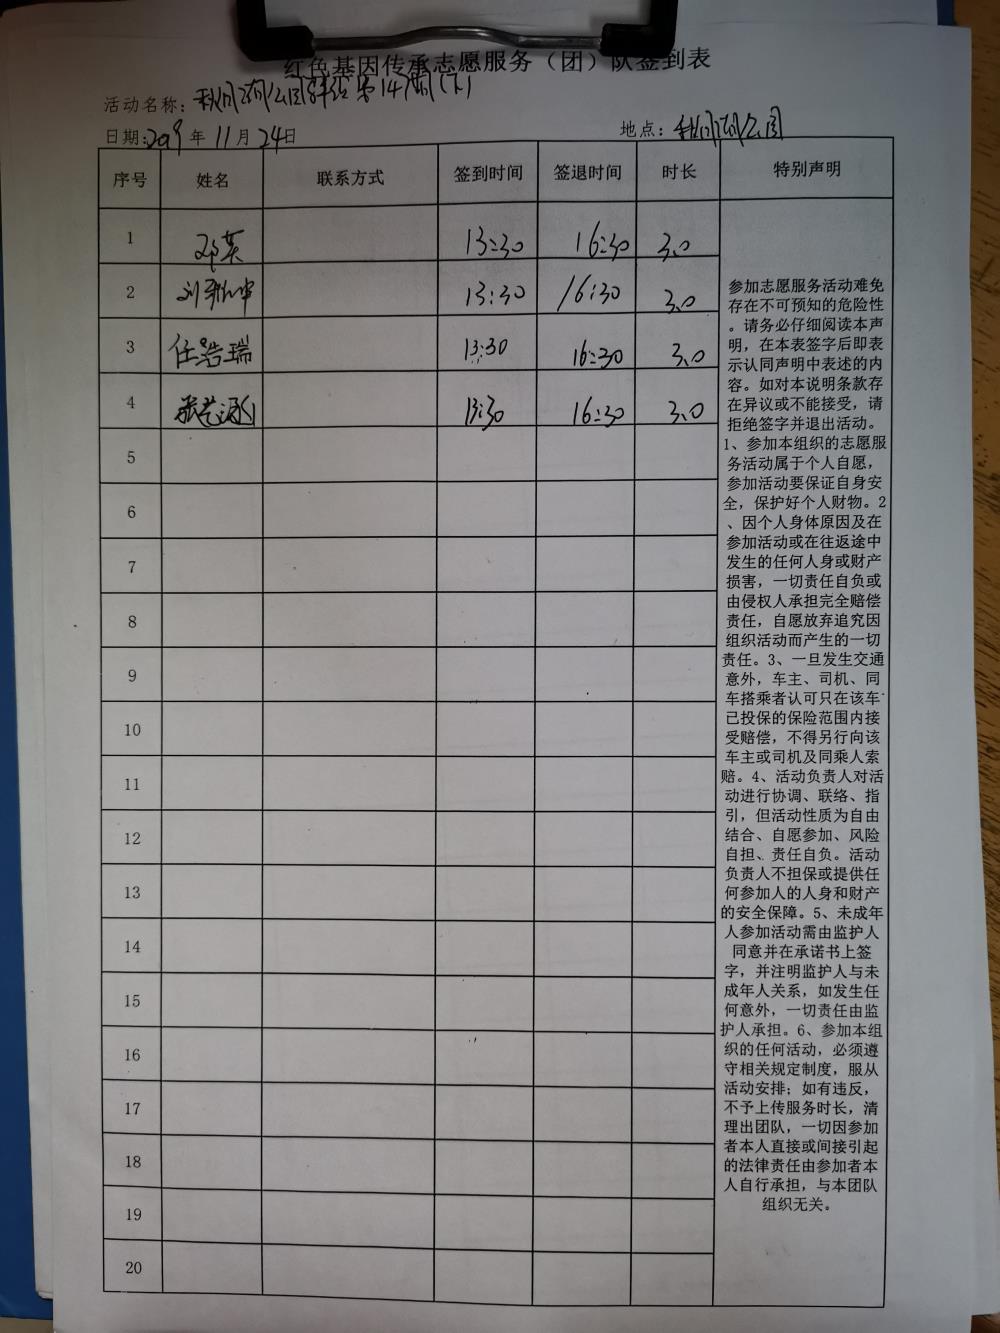 红色基因传承志愿服务（团）队签到表
活动名称：
日期：2019年11月24日 地点：
序号 姓名 联系方式 签到时间 签退时间 时长 特别声明
1 邓英 13:30 16:30 3.0
2 13:30 16:30 3.0
3 任浩瑞 13:30 16:30 3.0
4 13:30 16:30 3.0
5
6
7
8
9
10
11
12
13
14
15
16
17
18
19
20
参加志愿服务活动难免
存在不可预知的危险性
。请务必仔细阅读本声
明，在本表签字后即表
示认同声明中表述的内
容。如对本说明条款存
在异议或不能接受，请
拒绝签字并退出活动。
1、参加本组织的志愿服
务活动属于个人自愿，
参加活动要保证自身安
全，保护好个人财物。2
、因个人身体原因及在
参加活动或在往返途中
发生的任何人身或财产
损害，一切责任自负或
由侵权人承担完全赔偿
责任，自愿放弃追究因
组织活动而产生的一切
责任。3、一旦发生交通
意外，车主、司机、同
车搭乘者认可只在该车
已投保的保险范围内接
受赔偿，不得另行向该
车主或司机及同乘人索
赔。4、活动负责人对活
动进行协调、联络、指
引，但活动性质为自由
结合、自愿参加、风险
自担、责任自负。活动
负责人不担保或提供任
何参加人的人身和财产
的安全保障。5、未成年
人参加活动需由监护人
同意并在承诺书上签
字，并注明监护人与未
成年人关系，如发生任
何意外，一切责任由监
护人承担。6、参加本组
织的任何活动，必须遵
守相关规定制度，服从
活动安排；如有违反，
不予上传服务时长，清
理出团队，一切因参加
者本人直接或间接引起
的法律责任由参加者本
人自行承担，与本团队
组织无关。